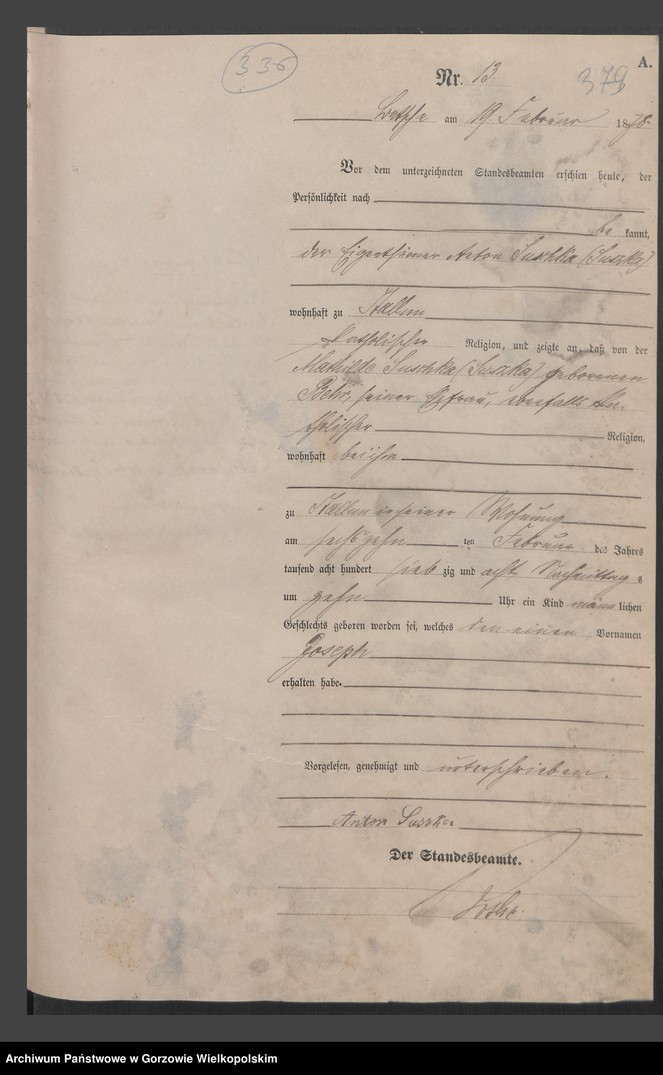 336
A.
Nr. 13.
379
Betsche am 19. Februar 1878.
Vor dem unterzeichneten Standesbeamten erschien heute, der
Persönlichkeit nach
be kannt,
der Eigenthümer Anton Suschka (Suszka)
wohnhaft zu Stallun
katholischer Religion, und zeigte an, daß von der
Mathilde Suschka (Suszka) geborenen
Behr, seiner Ehefrau, ebenfalls ka-
tholischer Religion,
wohnhaft bei ihm
zu Stallun in seiner Wohnung
am sechszehn ten Februar des Jahres
tausend acht hundert sieb zig und acht Nachmittag s
um zehn Uhr ein Kind männ lichen
Geschlechts geboren worden sei, welches den einen Vornamen
Joseph
erhalten habe.
Vorgelesen, genehmigt und unterschrieben.
Anton Suszka
Der Standesbeamte.
Archiwum Państwowe w Gorzowie Wielkopolskim